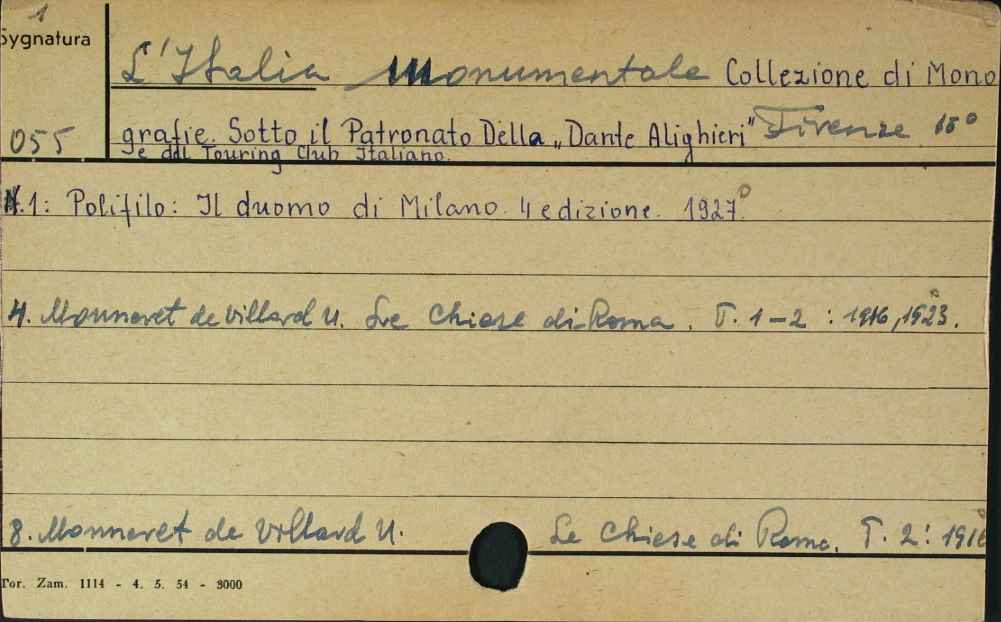 1
Sygnatura
L'Italia Monumentale Collezione di Mono
055
grafie. Sotto il Patronato Della „Dante Alighieri" Firenze 16°
e del Touring Club Italiano.
N.1: Polifilo: Il duomo di Milano. 4 edizione. 1927.
4. Monneret de Villard U. Le Chiese di Roma. T. 1-2 : 1916, 1923.
8. Monneret de Villard U. Le Chiese di Roma. T. 2: 1916
Tor. Zam. 1114 - 4. 5. 54 - 3000